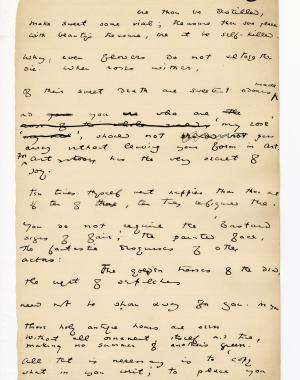 ere thou be distilled,
make sweet some vial; treasure thou some place
with beauty's treasure, ere it be self-killed.
Why, even flowers do not altogether
die. When roses wither,
Of their sweet death are sweetest odours made
so you who are the
'my rose'
should not pass
away without leaving your form in Art.
For Art has the very secret of
joy.
Ten times thyself were happier than thou art
If ten of thine, ten times refigured thee.
You do not require the 'bastard
signs of fair', the painted face,
the fantastic disguises of other
actors:
The golden tresses of the dead,
the right of sepulchres
need not be shorn away for you. In you
Those holy antique hours are seen
Without all ornament, itself and true,
making no summer of another's green.
All that is necessary is to 'copy
what in you is writ'; to place you